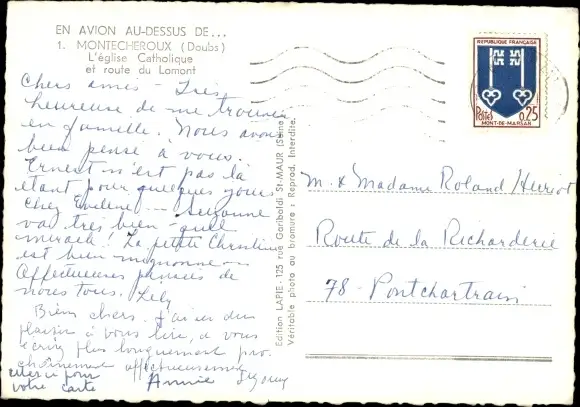 EN AVION AU-DESSUS DE...
1. MONTECHEROUX (Doubs)
L'église Catholique
et route du Lamont
Chers amis - Très
heureuse de me trouver
en famille. Nous avons
bien pensé à vous.
Ernest n'est pas là
étant pour quelques jours
chez Evelyne - Suzanne
va très bien - quel
miracle! La petite Christine
est bien mignonne -
Affectueuses pensées de
nous tous. Lily
Bien chers. J'ai eu du
plaisir à vous lire, à vous
écrire plus longuement pro-
chainement affectueusement
merci pour
votre carte Annie
Edition LAPIE - 125 rue Garibaldi St-MAUR (Seine)
Véritable photo au bromure : Reprod. Interdite.
REPUBLIQUE FRANÇAISE
Postes 0,25
MONT-DE-MARSAN
M. & Madame Roland Henriot
Route de la Richarderie
78 - Pontchartrain